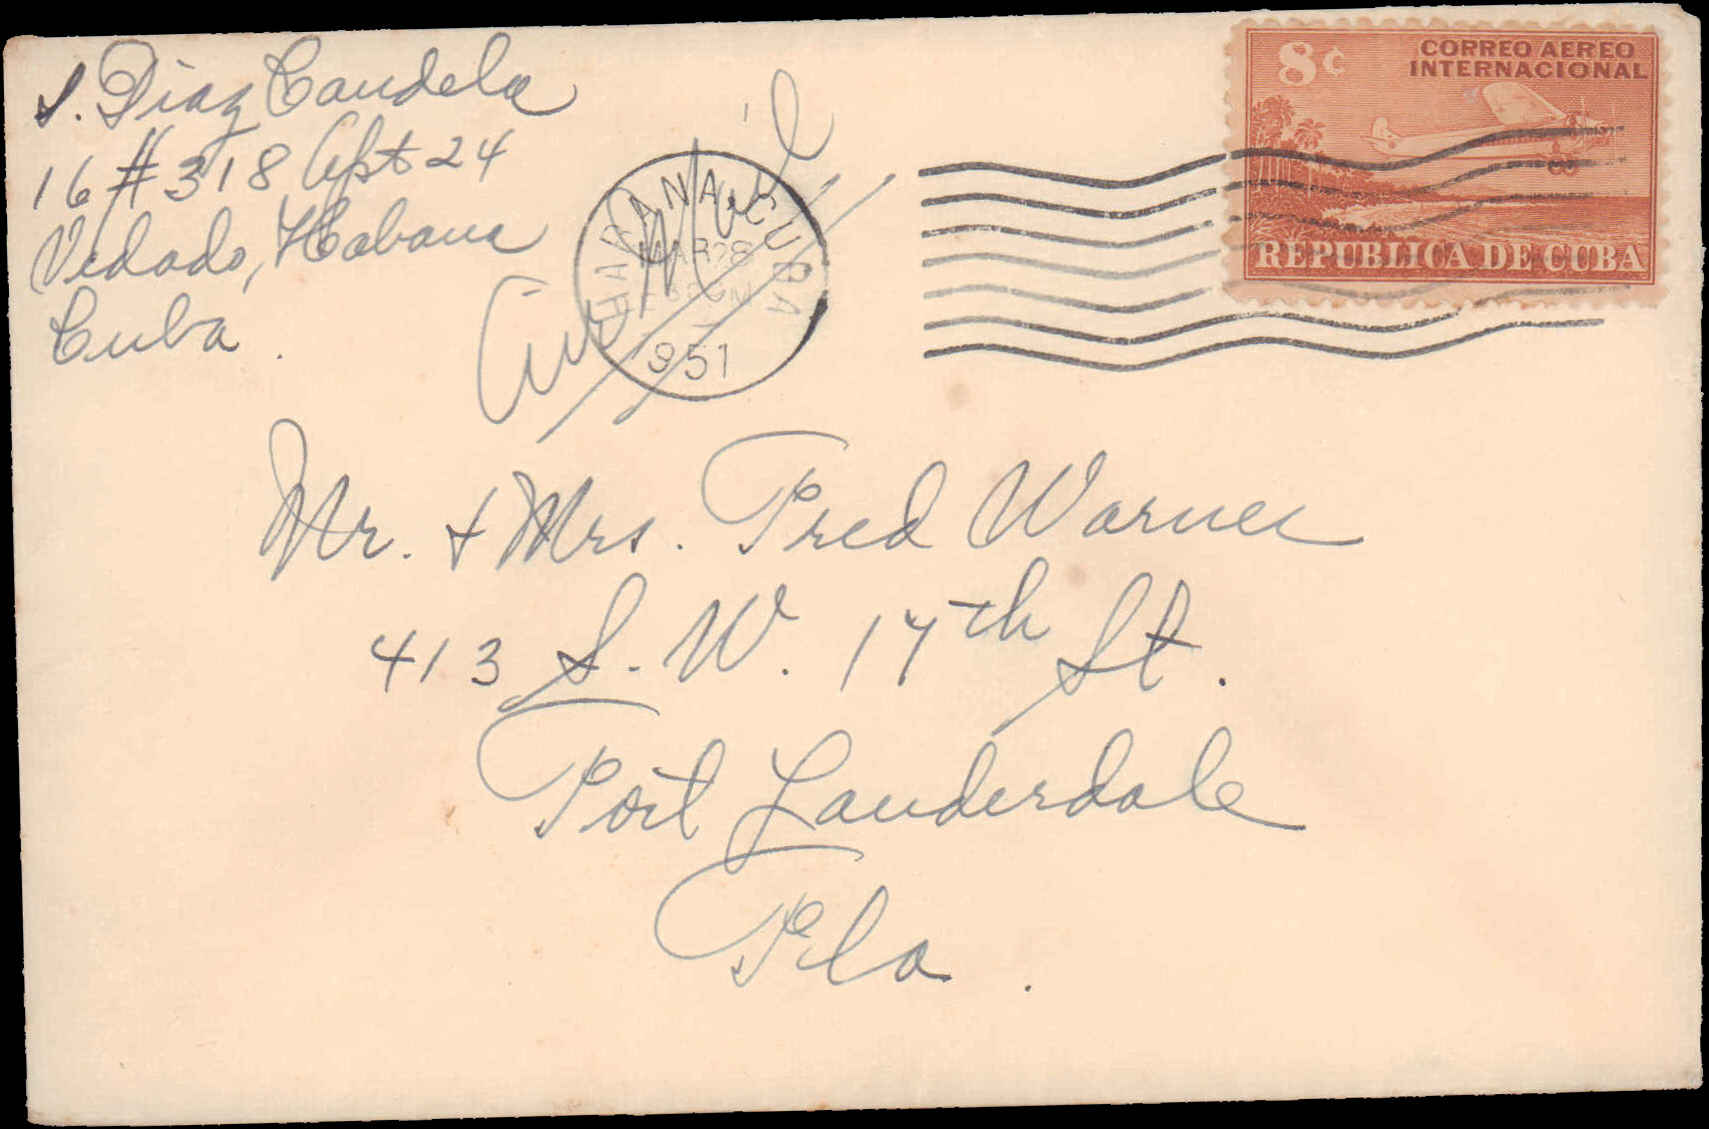 S. Diaz Candela
16 # 318 Apt 24
Vedado, Habana
Cuba.
Air Mail
HABANA, CUBA
MAR 28
PM
1951
8¢
CORREO AEREO
INTERNACIONAL
REPUBLICA DE CUBA
Mr. + Mrs. Fred Warner
413 S. W. 17th St.
Fort Lauderdale
Fla.